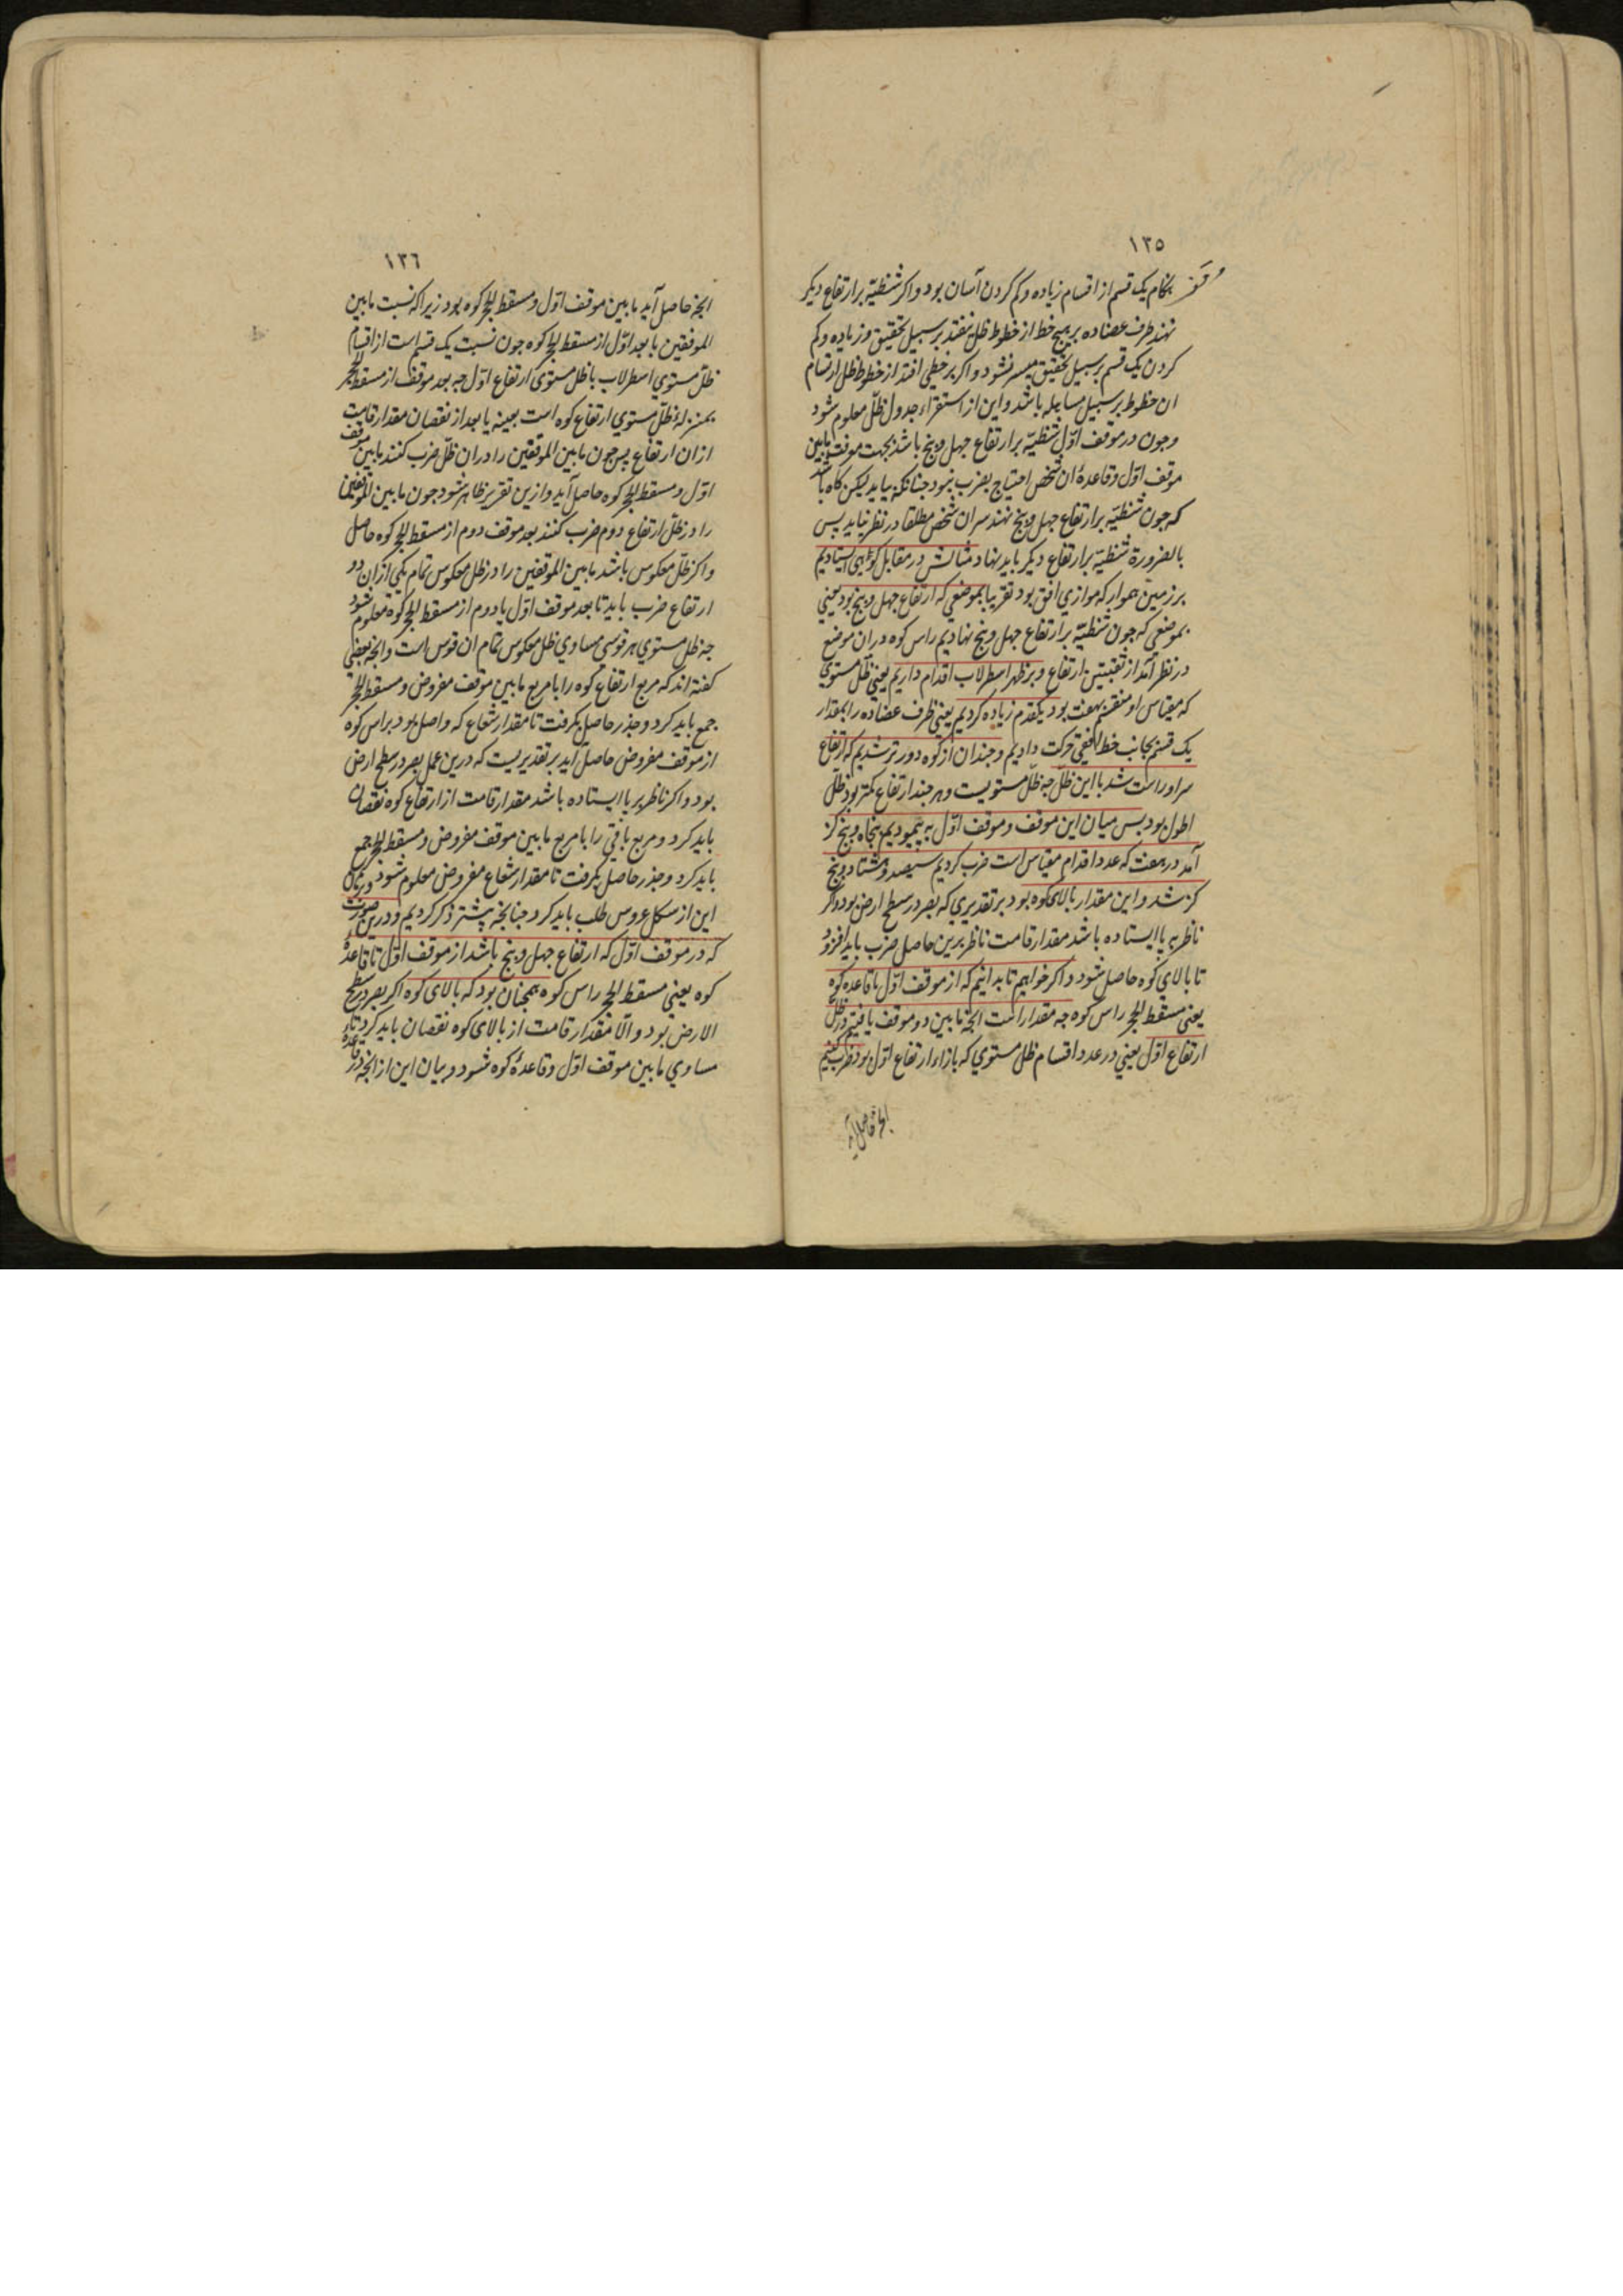 ١٣٥
بکام یک قسم از اقسام زیاده و کم کردن آسان بود و اکر شظیّه بر ارتفاع دیکر
نهند طرف عضاده بر هیچ خط از خطوط ظل نیفتد بر سبیل تحقیق و زیاده و کم
کردن یک قسم بر سبیل تحقیق میسر نشود و اکر بر خطی افتد از خطوط ظل ارتسام
ان خطوط بر سبیل مساهله باشد و این از استقراء جدول ظلّ معلوم شود
وجون در موقف اوّل شظیّه بر ارتفاع جهل وبنج باشد بجهت معرفت مابین
موقف اوّل وقاعدهٔ ان شخص احتیاج بضرب نبود جنانکه بیاید لیکن کاه باشد
که جون شظیّه بر ارتفاع جهل وبنج نهند سر ان شخص مطلقا در نظر نیاید بس
بالضرورة شظیّه بر ارتفاع دیکر باید نهاد مثالش در مقابل کوهی ایستادیم
بر زمین هموار که موازی افق بود تقریبا بموضعی که ارتفاع جهل وبنج بود یعنی
بموضعی که جون شظیّه بر ارتفاع جهل وبنج نهادیم راس کوه دران موضع
در نظر آمد از ثقبتین ارتفاع و بر ظهر اسطرلاب اقدام داریم یعنی ظلّ مستوی
که مقیاس او منقسم بهفت بود یکقدم زیاده کردیم یعنی طرف عضاده را بمقدار
یک قسم بجانب خط افقی حرکت دادیم و جندان از کوه دورتر شدیم که ارتفاع
سر او راست شد با این ظلّ جه ظلّ مستویست و هر جند ارتفاع کمتر بود ظلّ
اطول بود بس میان این موقف و موقف اوّل به پیمودیم بنجاه وبنج کز
آمد در هفت که عدد اقدام مقیاس است ضرب کردیم سیصد وهشتاد وبنج
کز شد و این مقدار بالای کوه بود بر تقدیری که بصر در سطح ارض بود و اکر
ناظر بر پا ایستاده باشد مقدار قامت ناظر برین حاصل ضرب باید افزود
تا بالای کوه حاصل شود و اکر خواهیم تا بدانیم که از موقف اوّل تا قاعده کوه
یعنی مسقط الحجر راس کوه جه مقدار است انجه مابین دو موقف یافتیم در ظلّ
ارتفاع اوّل یعنی در عدد اقسام ظل مستوی که بازاء ارتفاع اوّل بود ضرب کنیم
انجه حاصل آید
١٣٦
انجه حاصل آید مابین موقف اوّل و مسقط الحجر کوه بود زیرا که نسبت مابین
الموقفین با بعد اوّل از مسقط الحجر کوه جون نسبت یک قسم است از اقسام
ظلّ مستوی اسطرلاب با ظل مستوی ارتفاع اوّل جه بعد موقف از مسقط الحجر
بمنزلهٔ ظلّ مستوی ارتفاع کوه است بعینه یا بعد از نقصان مقدار قامت
از ان ارتفاع پس جون مابین الموقفین را دران ظلّ ضرب کنند مابین موقف
اوّل و مسقط الحجر کوه حاصل آید وازین تقریر ظاهر شود جون مابین الموقفین
را در ظلّ ارتفاع دوم ضرب کنند بعد موقف دوم از مسقط الحجر کوه حاصل
واکر ظلّ معکوس باشد مابین الموقفین را در ظل معکوس تمام یکی از ان دو
ارتفاع ضرب باید تا بعد موقف اوّل یا دوم از مسقط الحجر کوه معلوم شود
جه ظل مستوی هر قوسی مساوی ظل معکوس تمام ان قوس است وانجه بعضی
کفته اند که مربع ارتفاع کوه را با مربع مابین موقف مفروض و مسقط الحجر
جمع باید کرد و جذر حاصل بکرفت تا مقدار شعاع که واصل بود براس کوه
از موقف مفروض حاصل آید بر تقدیریست که درین عمل بصر در سطح ارض
بود و اکر ناظر بر پا ایستاده باشد مقدار قامت از ارتفاع کوه نقصان
باید کرد و مربع باقی را با مربع مابین موقف مفروض و مسقط الحجر جمع
باید کرد و جذر حاصل بکرفت تا مقدار شعاع مفروض معلوم شود وبرهان
این از شکل عروس طلب باید کرد جنانجه پیشتر ذکر کردیم ودرین صورت
که در موقف اوّل که ارتفاع جهل وبنج باشد از موقف اوّل تا قاعدهٔ
کوه یعنی مسقط الحجر راس کوه همجنان بود که بالای کوه اکر بصر در سطح
الارض بود و الّا مقدار قامت از بالای کوه نقصان باید کرد تا
مساوی مابین موقف اوّل و قاعدهٔ کوه شود و بیان این از انجه در قاعدهٔ